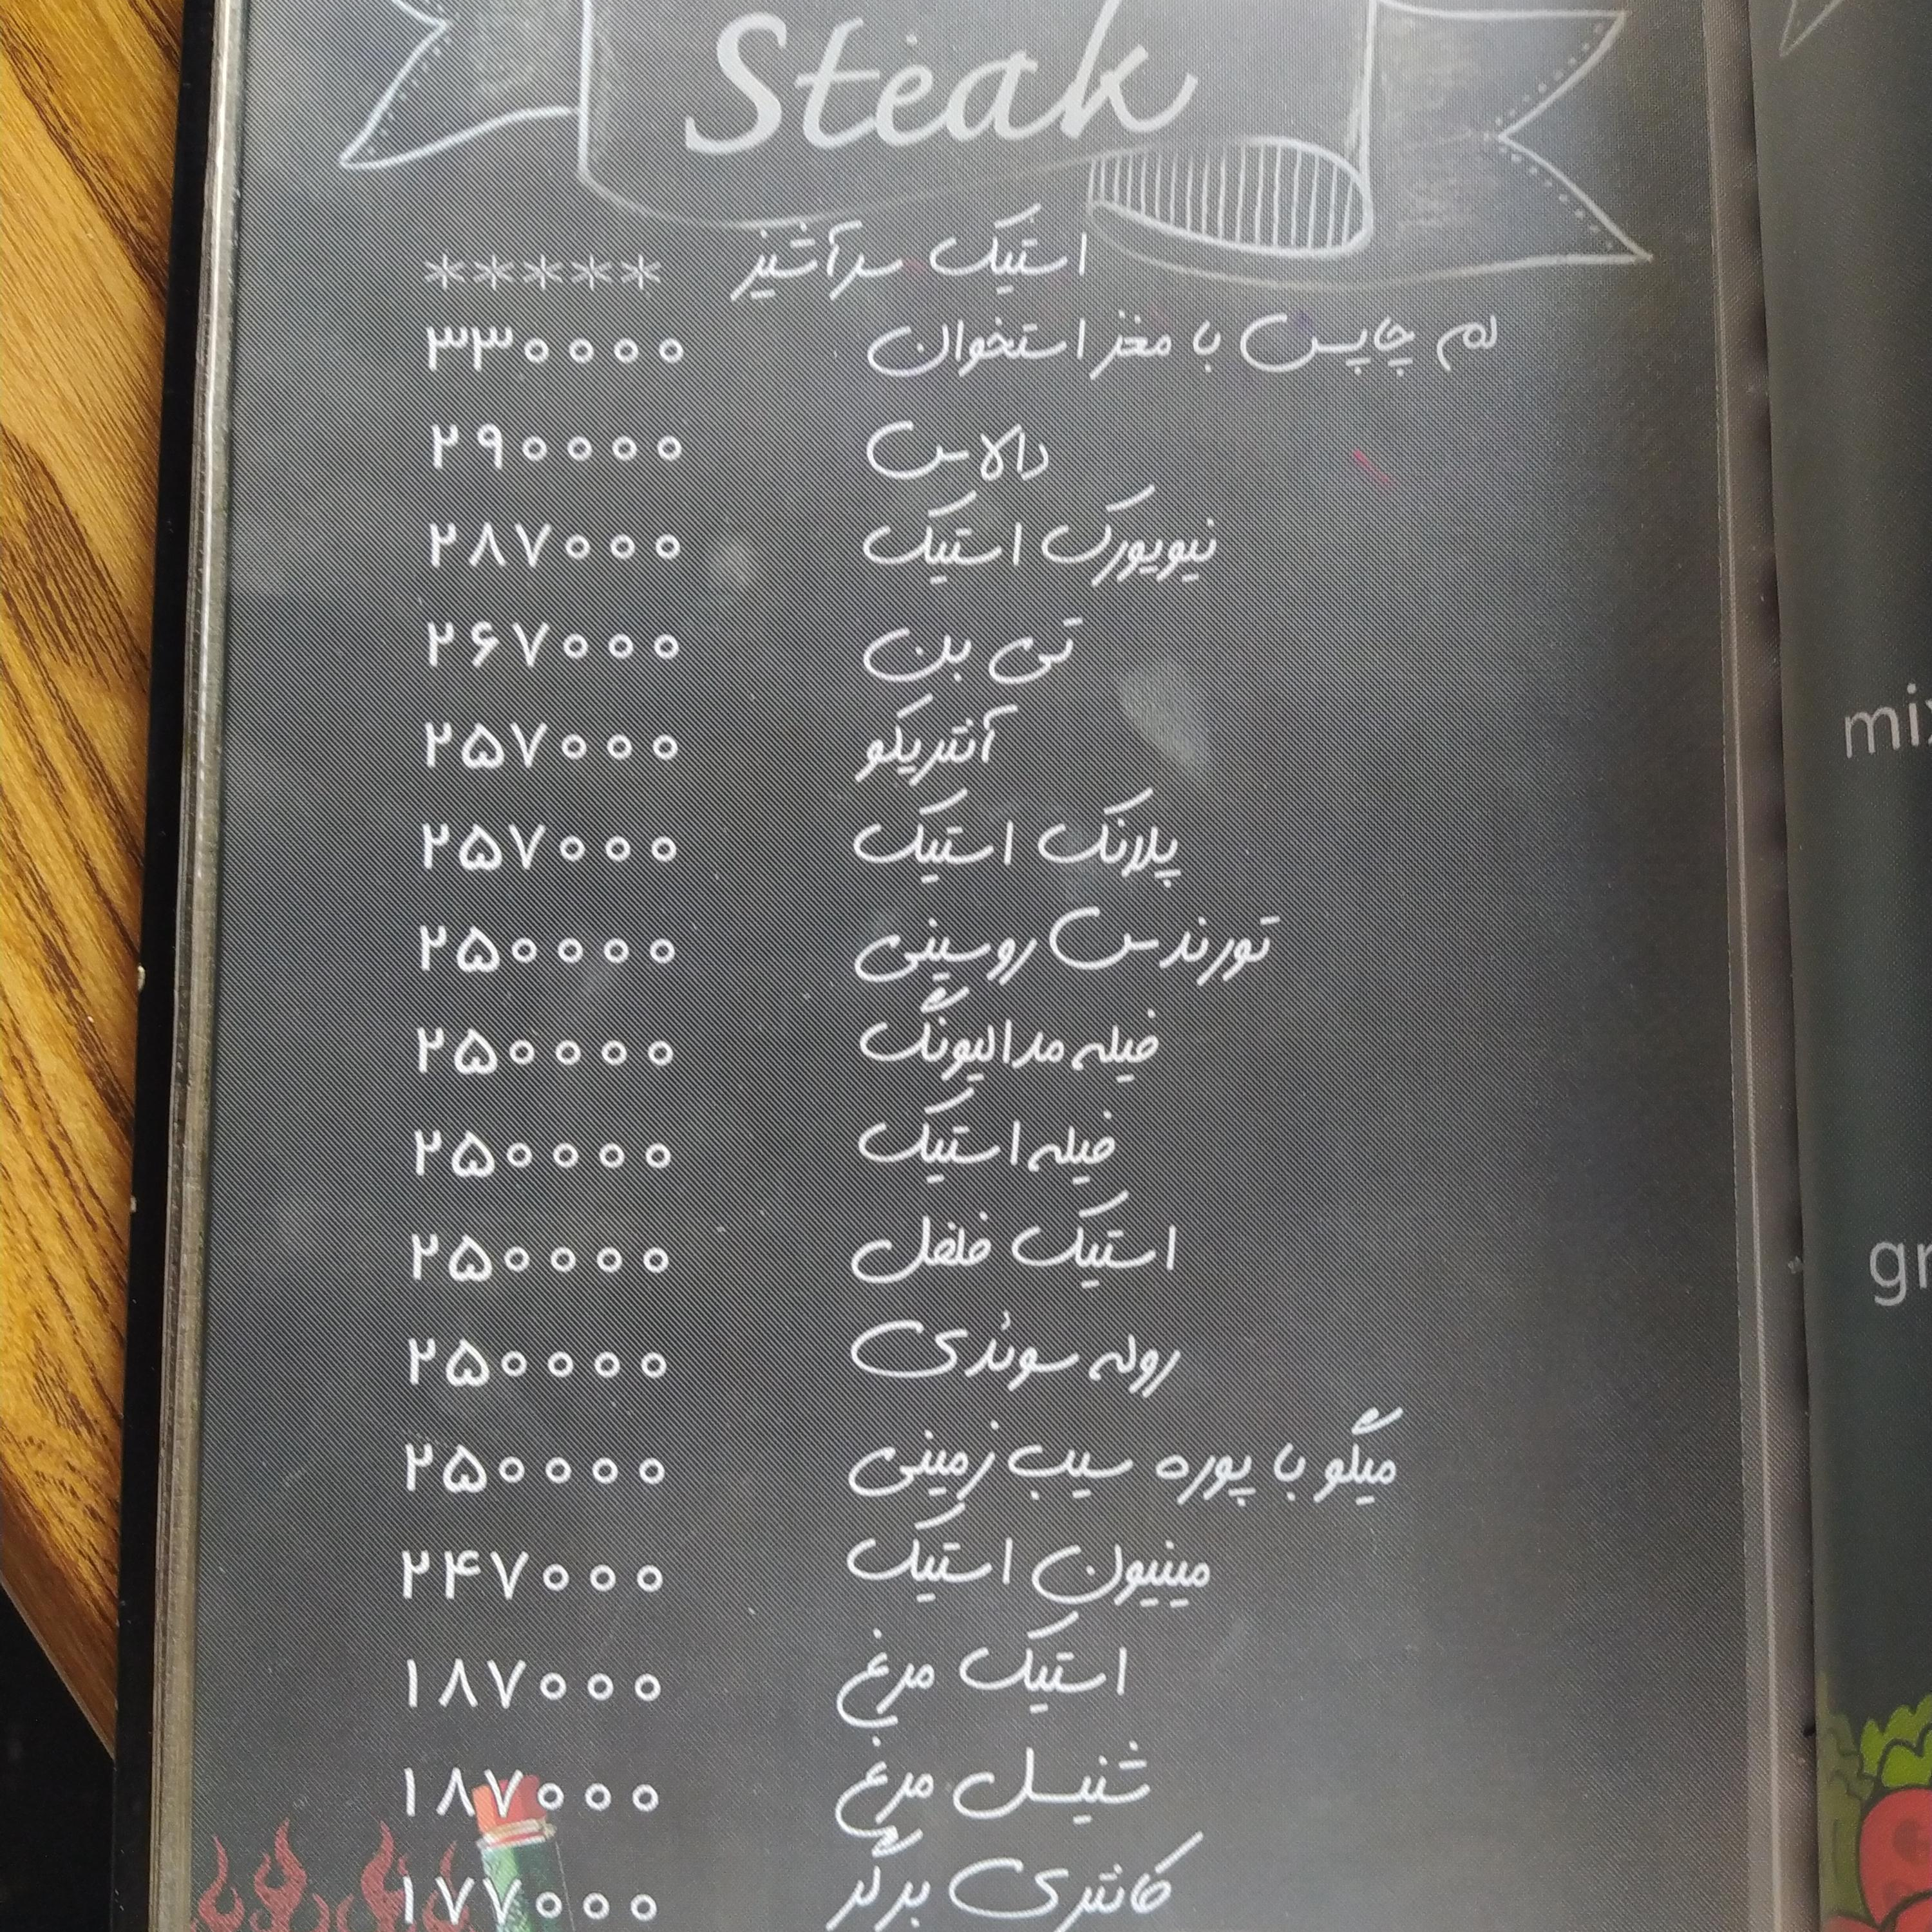 Steak
استیک سرآشپز *****
لم چاپس با مغز استخوان ۳۳۰۰۰۰
دالاس ۲۹۰۰۰۰
نیویورک استیک ۲۸۷۰۰۰
تی بن ۲۶۷۰۰۰
آنتریکو ۲۵۷۰۰۰
پلانک استیک ۲۵۷۰۰۰
تورندس روسینی ۲۵۰۰۰۰
فیله مدالیونگ ۲۵۰۰۰۰
فیله استیک ۲۵۰۰۰۰
استیک فلفل ۲۵۰۰۰۰
روله سوئدی ۲۵۰۰۰۰
میگو با پوره سیب زمینی ۲۵۰۰۰۰
مینیون استیک ۲۴۷۰۰۰
استیک مرغ ۱۸۷۰۰۰
شنیسل مرغ ۱۸۷۰۰۰
کانتری برگر ۱۷۷۰۰۰